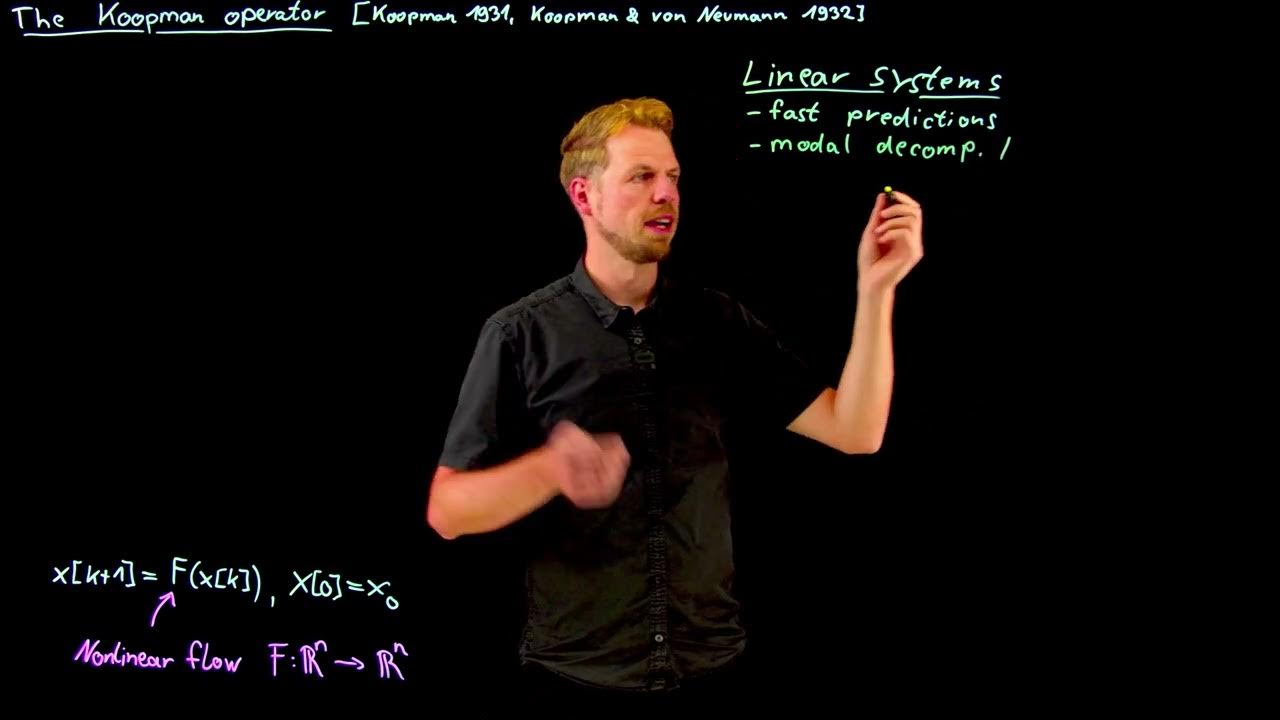 The Koopman operator [Koopman 1931, Koopman & von Neumann 1932]
Linear systems
- fast predictions
- modal decomp. /
x[k+1] = F(x[k]), x[0] = x₀
Nonlinear flow F: ℝⁿ → ℝⁿ